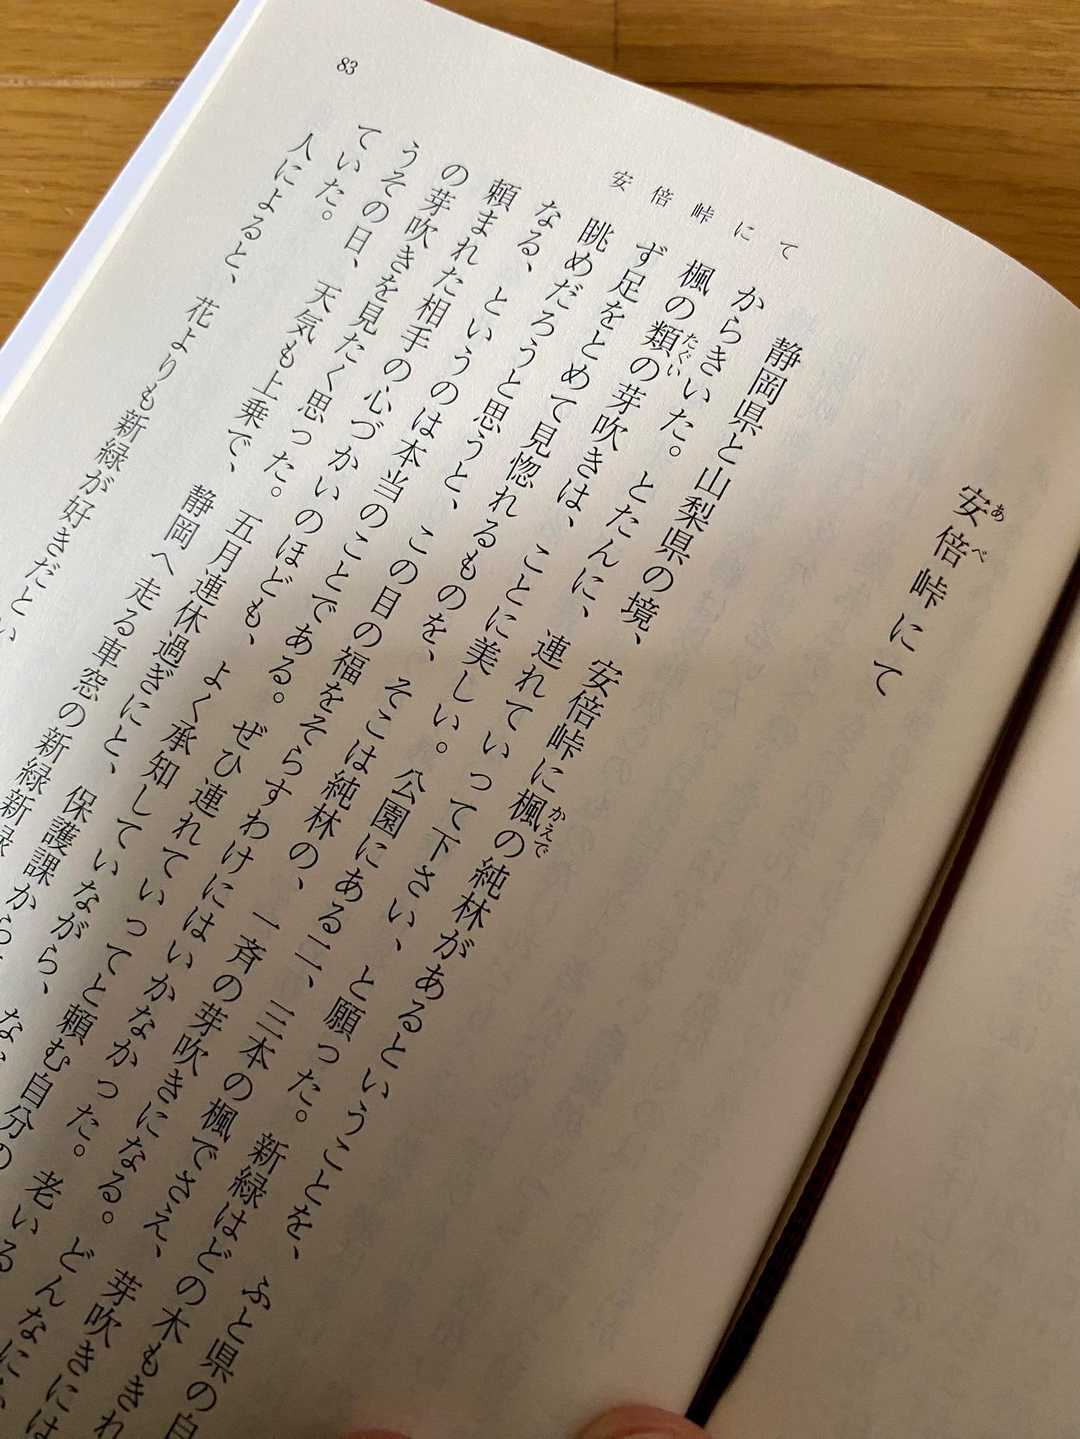 安倍峠にて
あべ
安倍峠にて
静岡県と山梨県の境、安倍峠に楓の純林があるということを、ふと県の自
かえで
からきいた。とたんに、連れていって下さい、と願った。新緑はどの木もきれ
楓の類の芽吹きは、ことに美しい。公園にある二、三本の楓でさえ、芽吹きには
たぐい
ず足をとめて見惚れるものを、そこは純林の、一斉の芽吹きになる。どんなに
眺めだろうと思うと、この日の福をそらすわけにはいかなかった。老いる
なる、というのは本当のことである。ぜひ連れていってと頼む自分の
頼まれた相手の心づかいのほども、よく承知していながら、
の芽吹きを見たく思った。五月連休過ぎにと、保護課から
うその日、天気も上乗で、静岡へ走る車窓の新緑新緑
ていた。
人によると、花よりも新緑が好きだとい
83